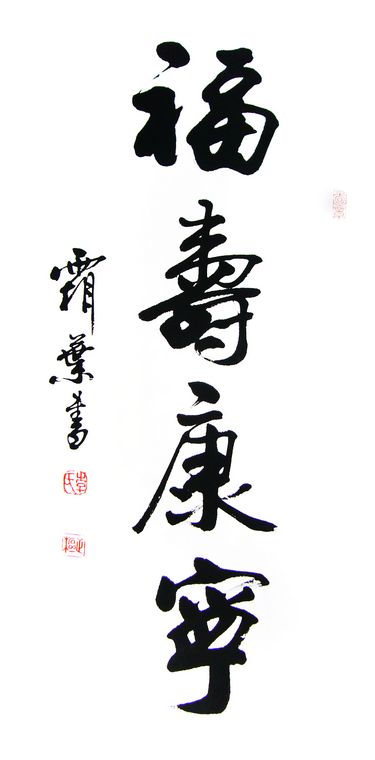 福壽康寧
霜葉書